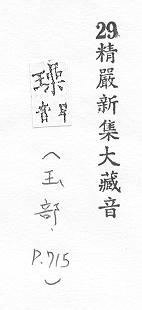 29精嚴新集大藏音
音早
(玉部,
P.715)